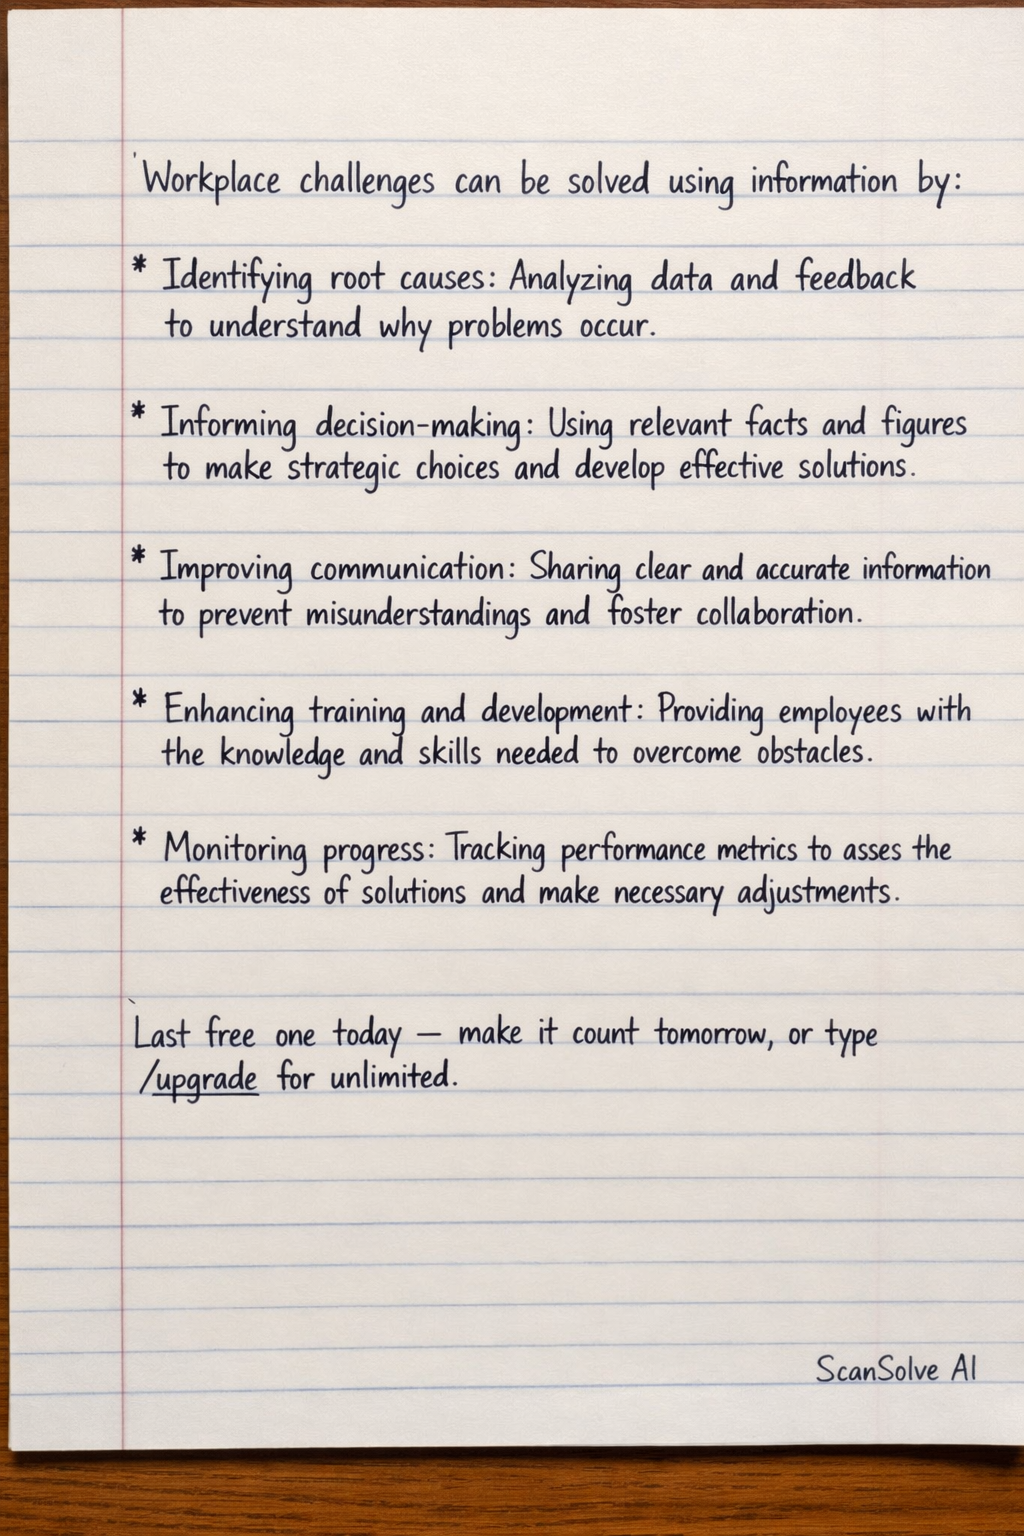 Workplace challenges can be solved using information by:
* Identifying root causes: Analyzing data and feedback
to understand why problems occur.
* Informing decision-making: Using relevant facts and figures
to make strategic choices and develop effective solutions.
* Improving communication: Sharing clear and accurate information
to prevent misunderstandings and foster collaboration.
* Enhancing training and development: Providing employees with
the knowledge and skills needed to overcome obstacles.
* Monitoring progress: Tracking performance metrics to asses the
effectiveness of solutions and make necessary adjustments.
Last free one today — make it count tomorrow, or type
/upgrade for unlimited.
ScanSolve AI